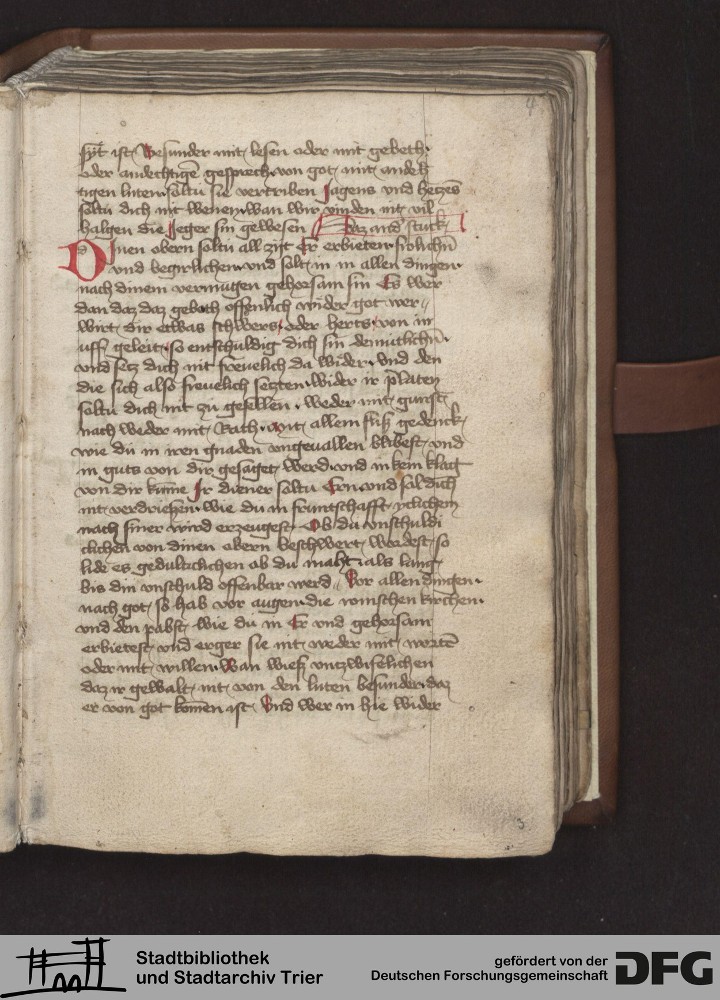 4
syt ist. Besunder mit lesen oder mit gebeth.
oder andechtigē gesprech. von got mit andeh
tigen luten. soltu sie vertriben Jagens und hetzēs
soltu dich nit wenen. wan wir vinden nit vil
halgen die Jeger sin gewesen Daz and' stuck
Dinen obern soltu all zijt Er erbieten. frolichn̄
und begirlichen. vnd solt in in allen dingen.
nach dinem vermugen gehorsam sin Es wer
dan daz daz geboth offenlich wider got wer
wirt dir etwas schwers. oder herts. von in
uff geleit. so entschuldig dich sin demutlichn̄.
vnd setz dich nit freuelich da wider. Vnd den
die sich also freuelich setzten. wider ir p̄laten
soltu dich nit zu gesellen. weder mit gunst
nach weder mit Rath. mit allem fliß gedenck
wie du in iren gnaden vngeuallen blibest. vnd
in guts von dir gesaget werd. vnd in kein klag
von dir kume Ir diener soltu Ern vnd sol dich
nit verdrießen. wie du in fruntschafft yclichem
nach siner wird erzeugest. Ob du vnschuldi
clichen von dinen obern beschwert werdest. so
lide es gedultclichen ob du maht als lang
bis din vnschuld offenbar werd. Vor allen dingen.
nach got so hab vor augen. die romschen kirchen.
vnd den pabst wie du in Er vnd gehorsam
erbietest vnd erger sie nit weder mit wortē
oder mit willen. Wan wieß vntzwifelichen
daz ir gewalt nit von den luten besunder. daz
er von got komen ist. Vnd wer in hie wider
3
Stadtbibliothek
und Stadtarchiv Trier
gefördert von der
Deutschen Forschungsgemeinschaft
DFG